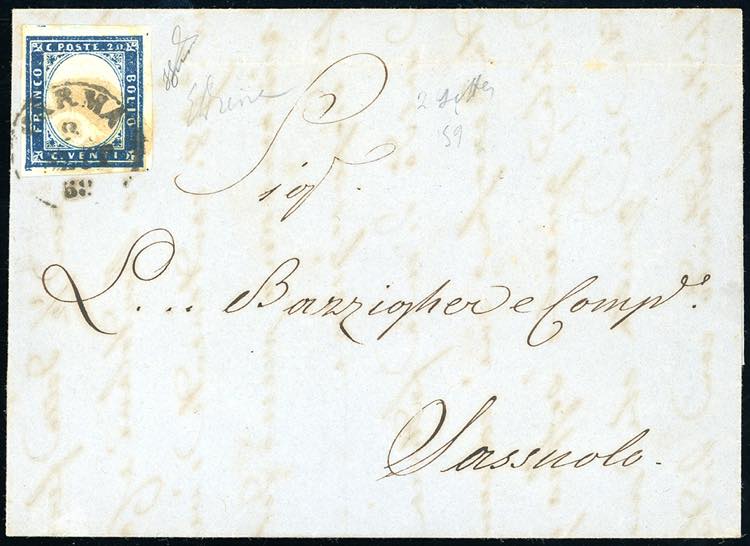 C. POSTE. 20
FRANCO
BOLLO
C. VENTI
PARMA
59
2 59
Sigr
L... Bazzigher e Compa.
Sassuolo.